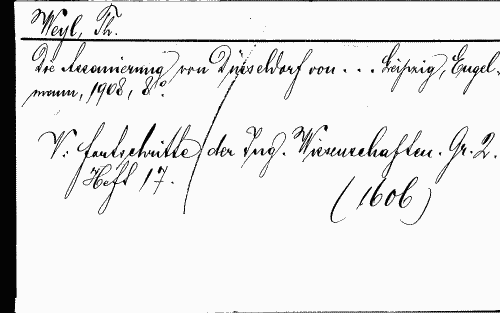 Weyl, Th.
Die Assanierung von Düsseldorf von . . . Leipzig, Engel-
mann, 1908, 8°.
V: Fortschritte der Ing. Wissenschaften. Gr. 2.
Heft 17.
(1606)